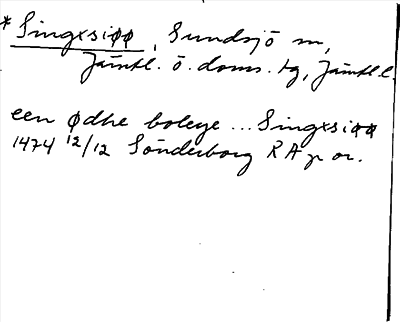 *Singxsiøø, Sundsjö sn,
Jämtl. ö. doms. tg, Jämtl. l.
een ødhe boleye ... Singxsiøø
1474 12/12 Sönderborg RAp or.